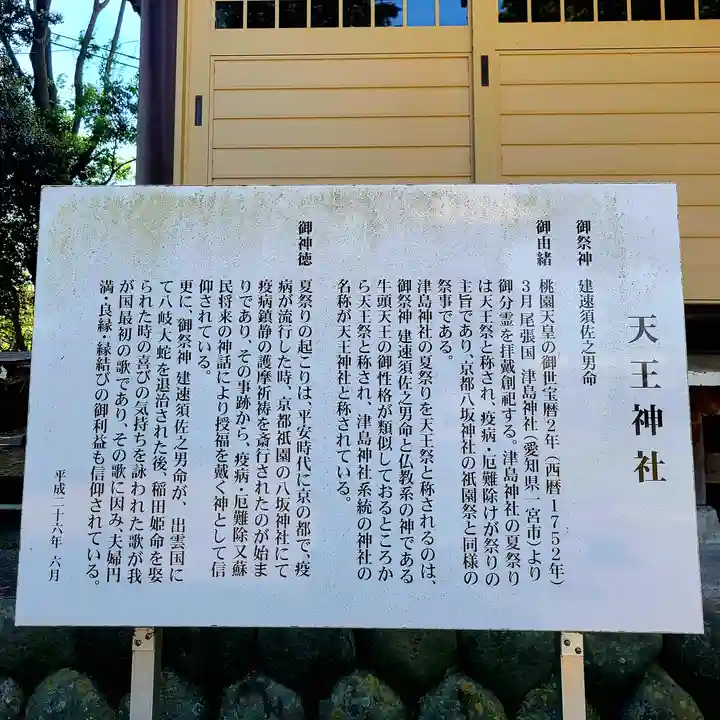 天王神社
御祭神 建速須佐之男命
御由緒 桃園天皇の御世宝暦2年(西暦1752年)
3月尾張国 津島神社(愛知県一宮市)より
御分霊を拝戴創祀する。津島神社の夏祭り
は天王祭と称され、疫病・厄難除けが祭りの
主旨であり、京都八坂神社の祇園祭と同様の
祭事である。
津島神社の夏祭りを天王祭と称されるのは、
御祭神 建速須佐之男命と仏教系の神である
牛頭天王の御性格が類似しておるところか
ら天王祭と称され、津島神社系統の神社の
名称が天王神社と称されている。
御神徳 夏祭りの起こりは、平安時代に京の都で、疫
病が流行した時、京都祇園の八坂神社にて
疫病鎮静の護摩祈祷を斎行されたのが始ま
りであり、その事跡から、疫病・厄難除又蘇
民将来の神話により授福を戴く神として信
仰されている。
更に、御祭神 建速須佐之男命が、出雲国に
て八岐大蛇を退治された後、稲田姫命を娶
られた時の喜びの気持ちを詠われた歌が我
が国最初の歌であり、その歌に因み、夫婦円
満・良縁・縁結びの御利益も信仰されている。
平成二十六年 六月